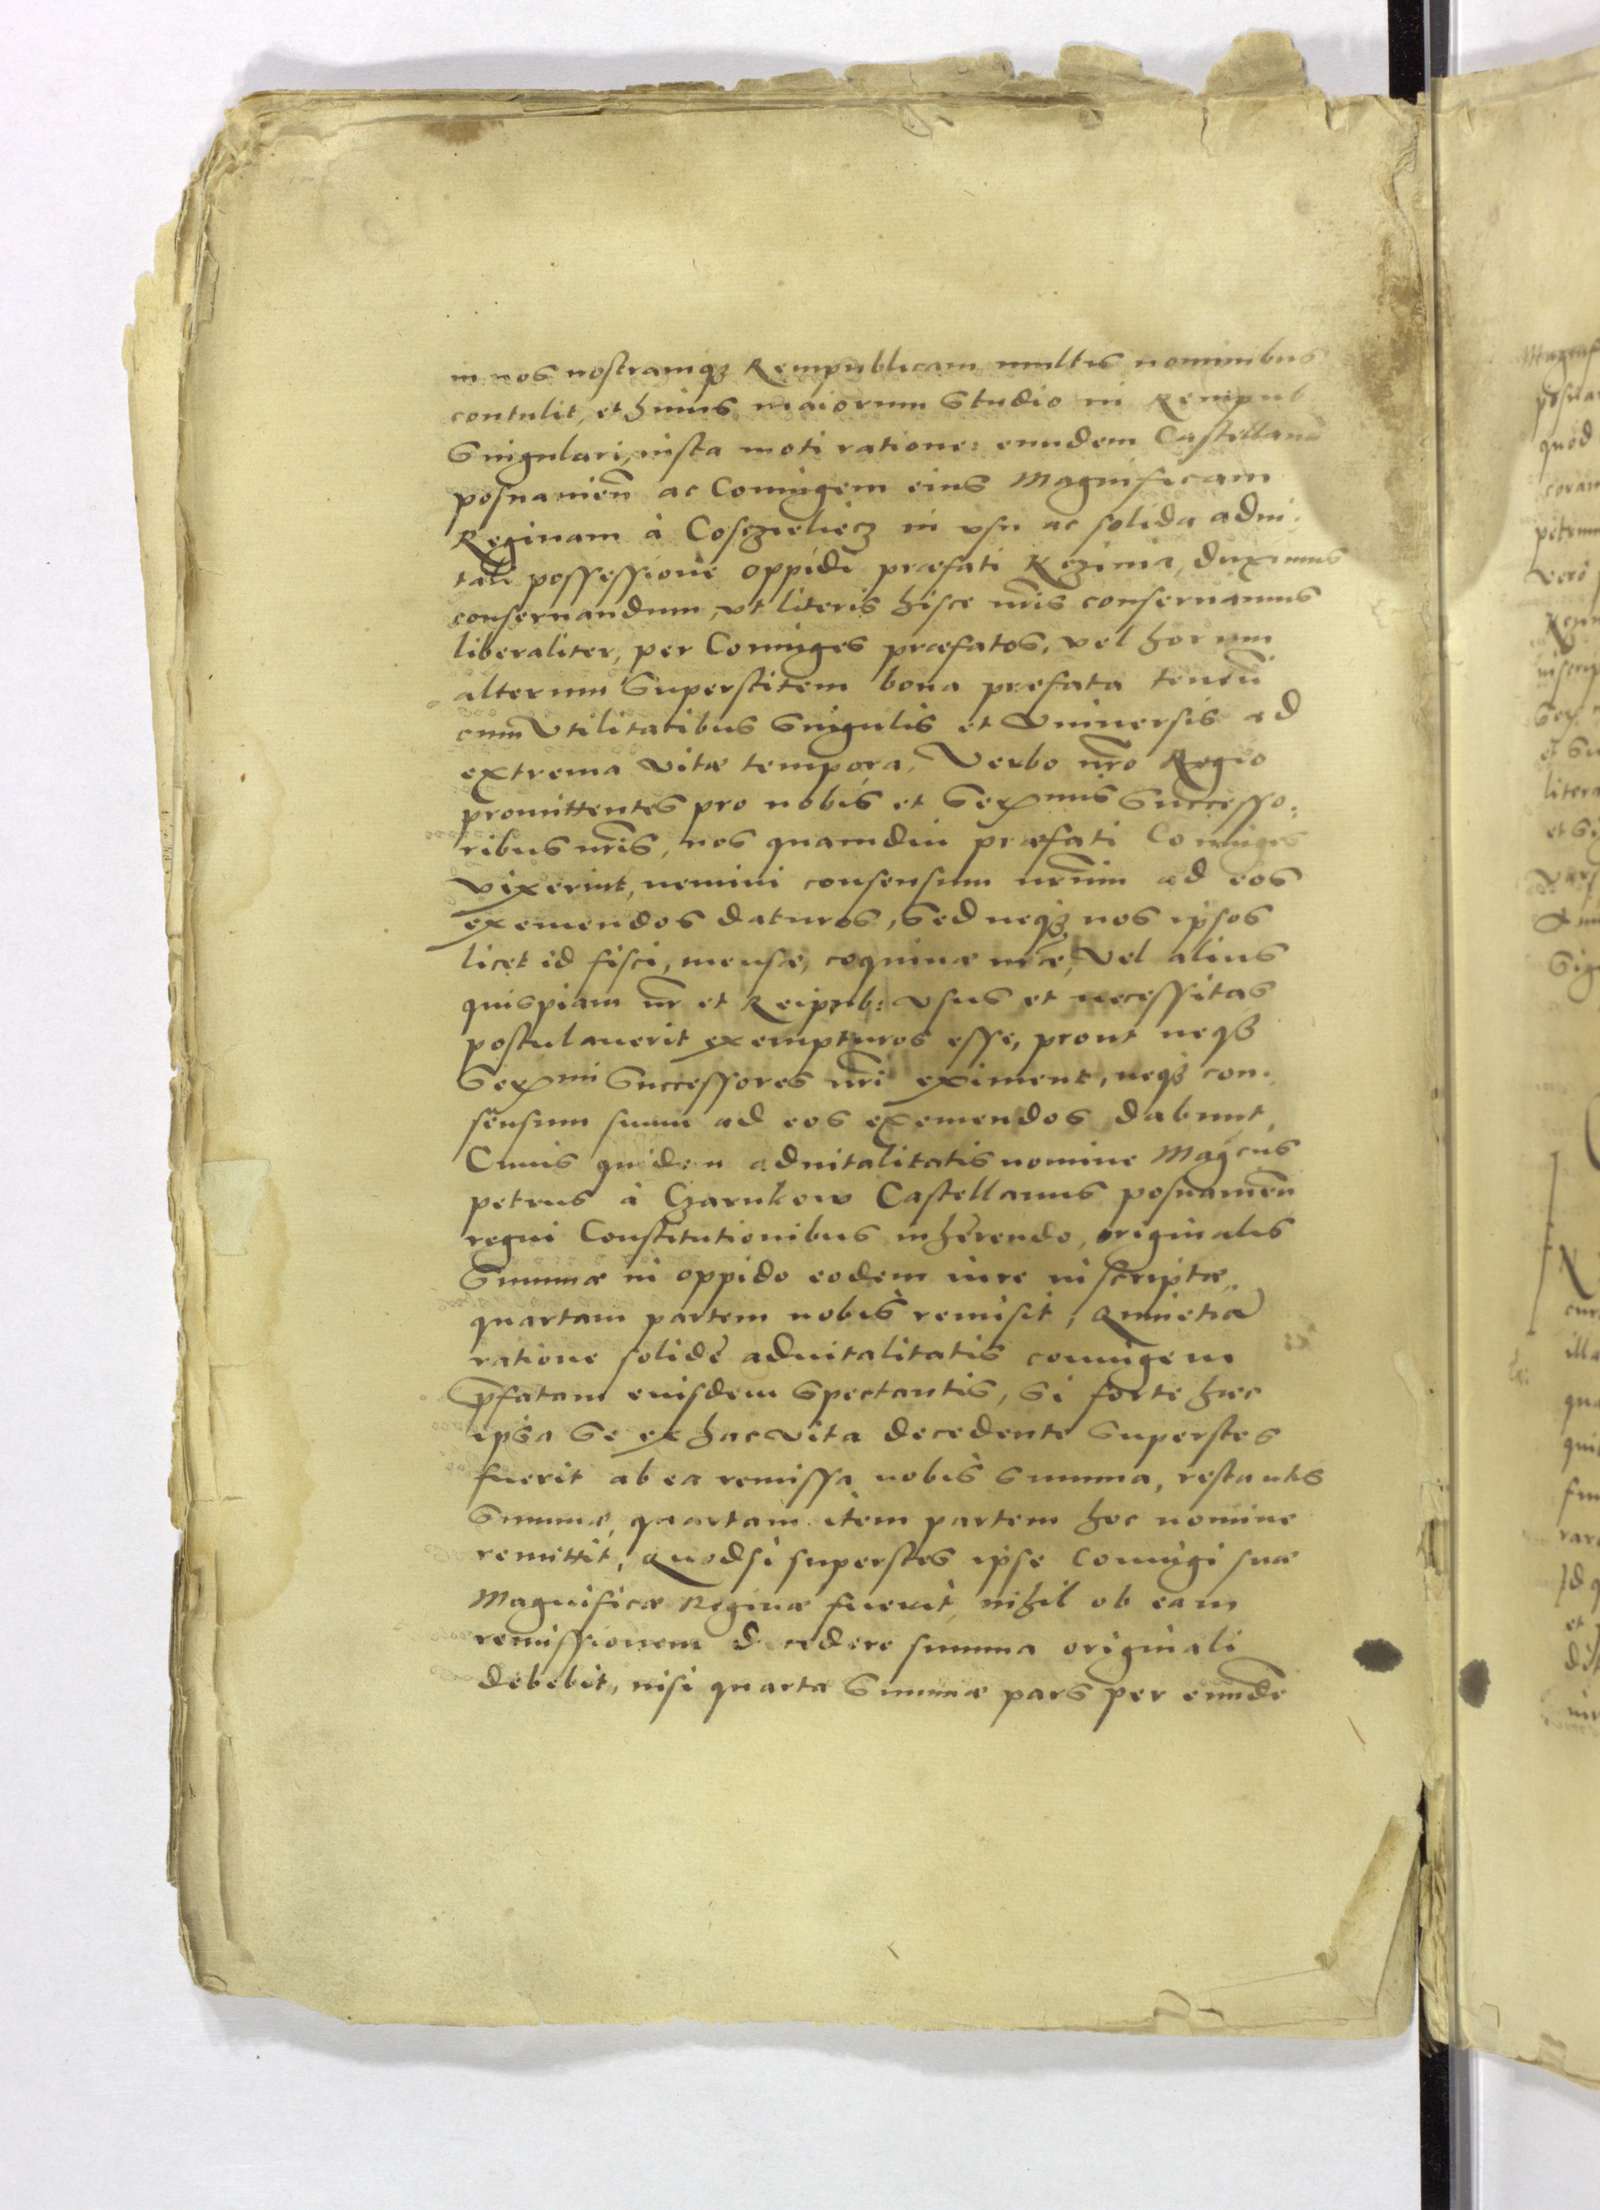 in nos nostramq3 Rempublicam multis nominibus
contulit, et huius maiorum Studio in Rempub
Singulari, iusta moti ratione: eundem Castellanū
posnanien̄ ac Coniugem eius Magnificam
Reginam à Cosczieliecz in vsu ac solida advi-
tali possessione oppidi præfati duximus
conseruandum, vt literis hisce nr̄is conseruamus
liberaliter, per Coniuges præfatos, vel horum
alterum Superstitem bona præfata
cum Vtilitatibus Singulis et Vniuersis ad
extrema vitæ tempora, Verbo nr̄o Regio
promittentes pro nobis et Ser^mis Successo:
ribus nr̄is, nos quamdiu præfati Coniuges
vixerint, nemini consensum nr̄um ad eos
exemendos daturos, sed neq3 nos ipsos
licet id fisci, mensæ, coquinæ nr̄æ, Vel alius
quispiam nr̄ et Reipub: vsus et necessitas
postulauerit exempturos esse, prout neq3
Ser^mi Successores nr̄i eximent, neq3 con-
sensum suum ad eos exemendos dabunt.
Cuius quidem aduitalitatis nomine Mag̃cus
petrus à Czarnkow Castellanus posnanien̄
regni Constitutionibus inhèrendo, originalis
Summæ in oppido eodem iure inscriptæ,
quartam partem nobis remisit, Quinetiā
ratione solidè aduitalitatis coniugem
p̄fatam eiusdem spectantis, si forte hæc
ipsa se ex hac vita decedente superstes
fuerit ab ea remissa nobis summa, restantis
Summæ, quartam item partem hoc nomine
remittit, Quodsi superstes ipse Coniugi suæ
Magnificæ Reginæ fuerit, nihil ob eam
remissionem decedere summa originali
debebit, nisi quarta Summæ pars per eundē